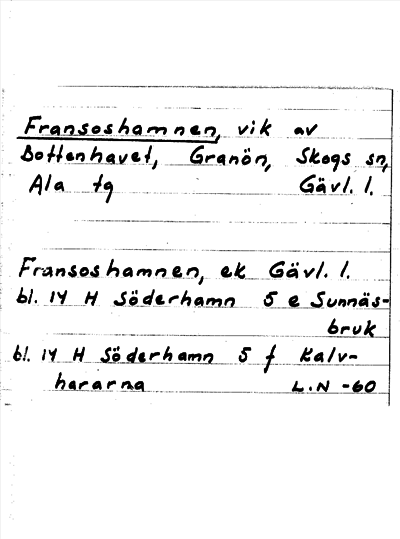 Fransoshamnen, vik av
Bottenhavet, Granön, Skogs sn,
Ala tg Gävl. l.
Fransoshamnen, ek Gävl. l.
bl. 14 H Söderhamn 5 e Sunnäs-
bruk
bl. 14 H Söderhamn 5 f Kalv-
hararna L.N -60